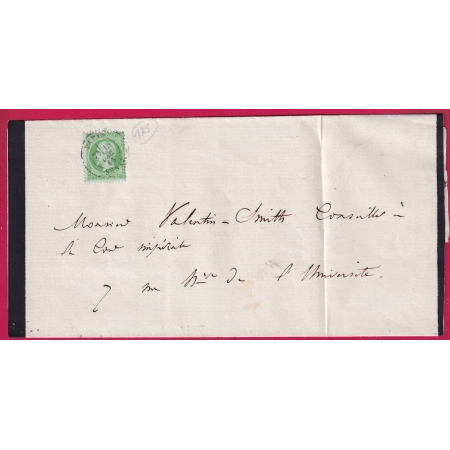 175
Monsieur Valentin-Smith Conseiller à
la Cour impériale
7 rue de l'Université.